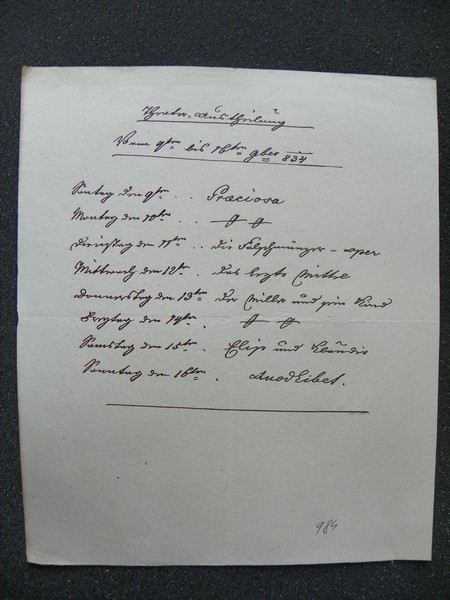 Theater-Austheilung
Vom 9ten bis 16ten 9ber 834
Sontag den 9ten . . Præciosa
Montag den 10ten . .
Dienstag den 11ten . . Die Falschmünzer - oper
Mittwoch den 12ten . Das lezte Mittel
Donnerstag den 13ten Der Müller und sein Kind
Freytag den 14ten .
Samstag den 15ten . Elise und Claudio
Sonntag den 16ten . Quodlibet.
984